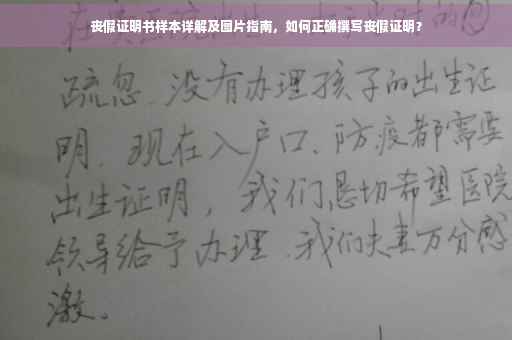 丧假证明书样本详解及图片指南，如何正确撰写丧假证明？
疏忽.没有办理孩子的出生证
明.现在入户口、防疫都需要
出生证明，我们恳切希望医院
领导给予办理.我们夫妻万分感
激。